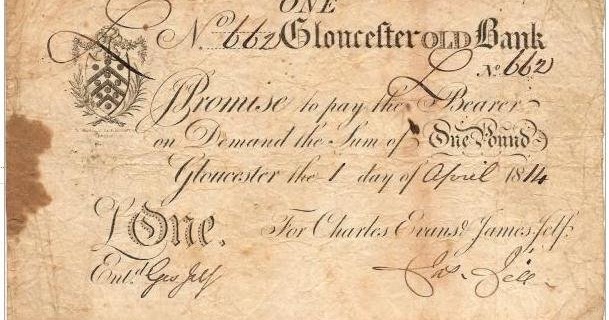 ONE
No. 662 Gloucester OLD Bank
No. 662
I Promise to pay the Bearer
on Demand the Sum of One Pound
Gloucester the 1 day of April 1814
£ One.
For Charles Evans & James Jelf.
Entd. Geo Jelf
Jas. Jelf